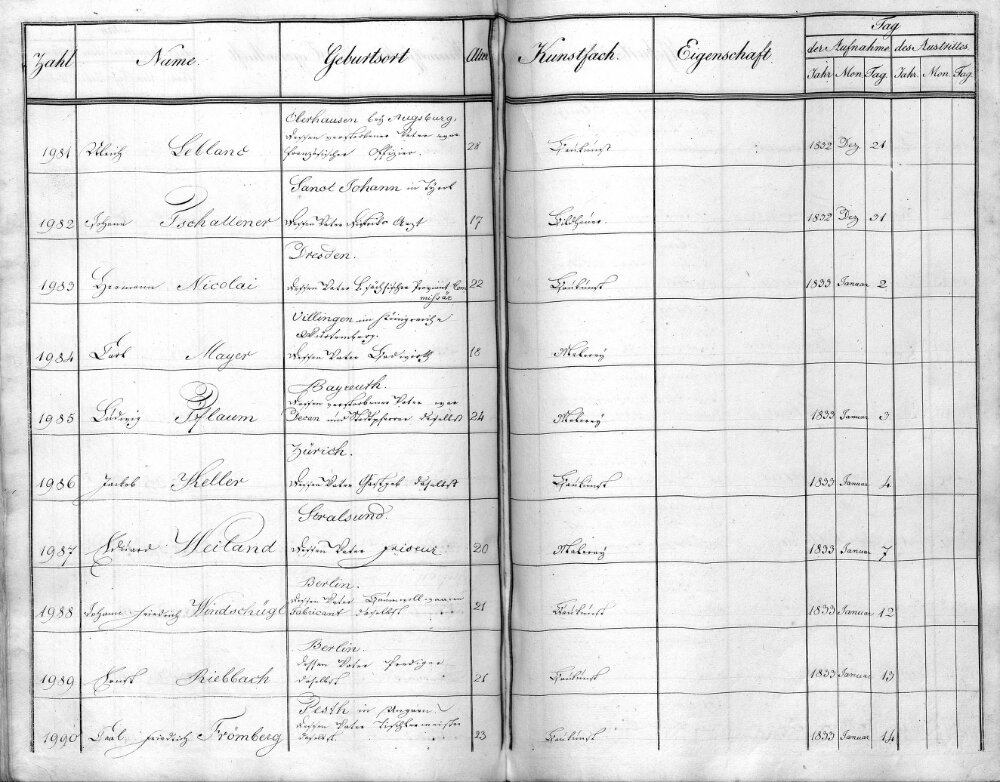 Zahl Name. Geburtsort Alter Kunstfach. Eigenschaft. Tag
der Aufnahme des Austrittes
Jahr Mon. Tag. Jahr. Mon. Tag.
Oberhausen bey Augsburg,
dessen verstorbener Vater war
1981 Ulrich Lebland französischer Offizier. 28 Baukunst 1832 Dez 21
Sanct Johann in Tyrol
1982 Johann Tschallener dessen Vater Arzt 17 Bildhauer. 1832 Dez 31
Dresden.
1983 Hermann Nicolai dessen Vater k. sächsischer Proviant Com 22 Baukunst 1833 Januar 2
missär
Villingen im Königreiche
Würtemberg.
1984 Carl Mayer dessen Vater 18 Malerey
Bayreuth.
dessen verstorbener Vater war
1985 Ludwig Pflaum Decan und Stadtpfarrer daselbst 24 Malerey 1833 Januar 3
Zürich.
1986 Jackob Keller dessen Vater daselbst Baukunst 1833 Januar 4
Stralsund.
1987 Eduard Weiland dessen Vater friseur 20 Malerey 1833 Januar 7
Berlin.
dessen Vater Baumwollwaaren
1988 Johann Friedrich Windschügl Fabricant daselbst 21 Baukunst 1833 Januar 12
Berlin.
dessen Vater Prediger
1989 Ernst Riebbach daselbst 21 Baukunst 1833 Januar 13
Pesth in Ungarn.
dessen Vater Tischlermeister
1990 Carl Friedrich Frömberg daselbst 23 Baukunst 1833 Januar 14